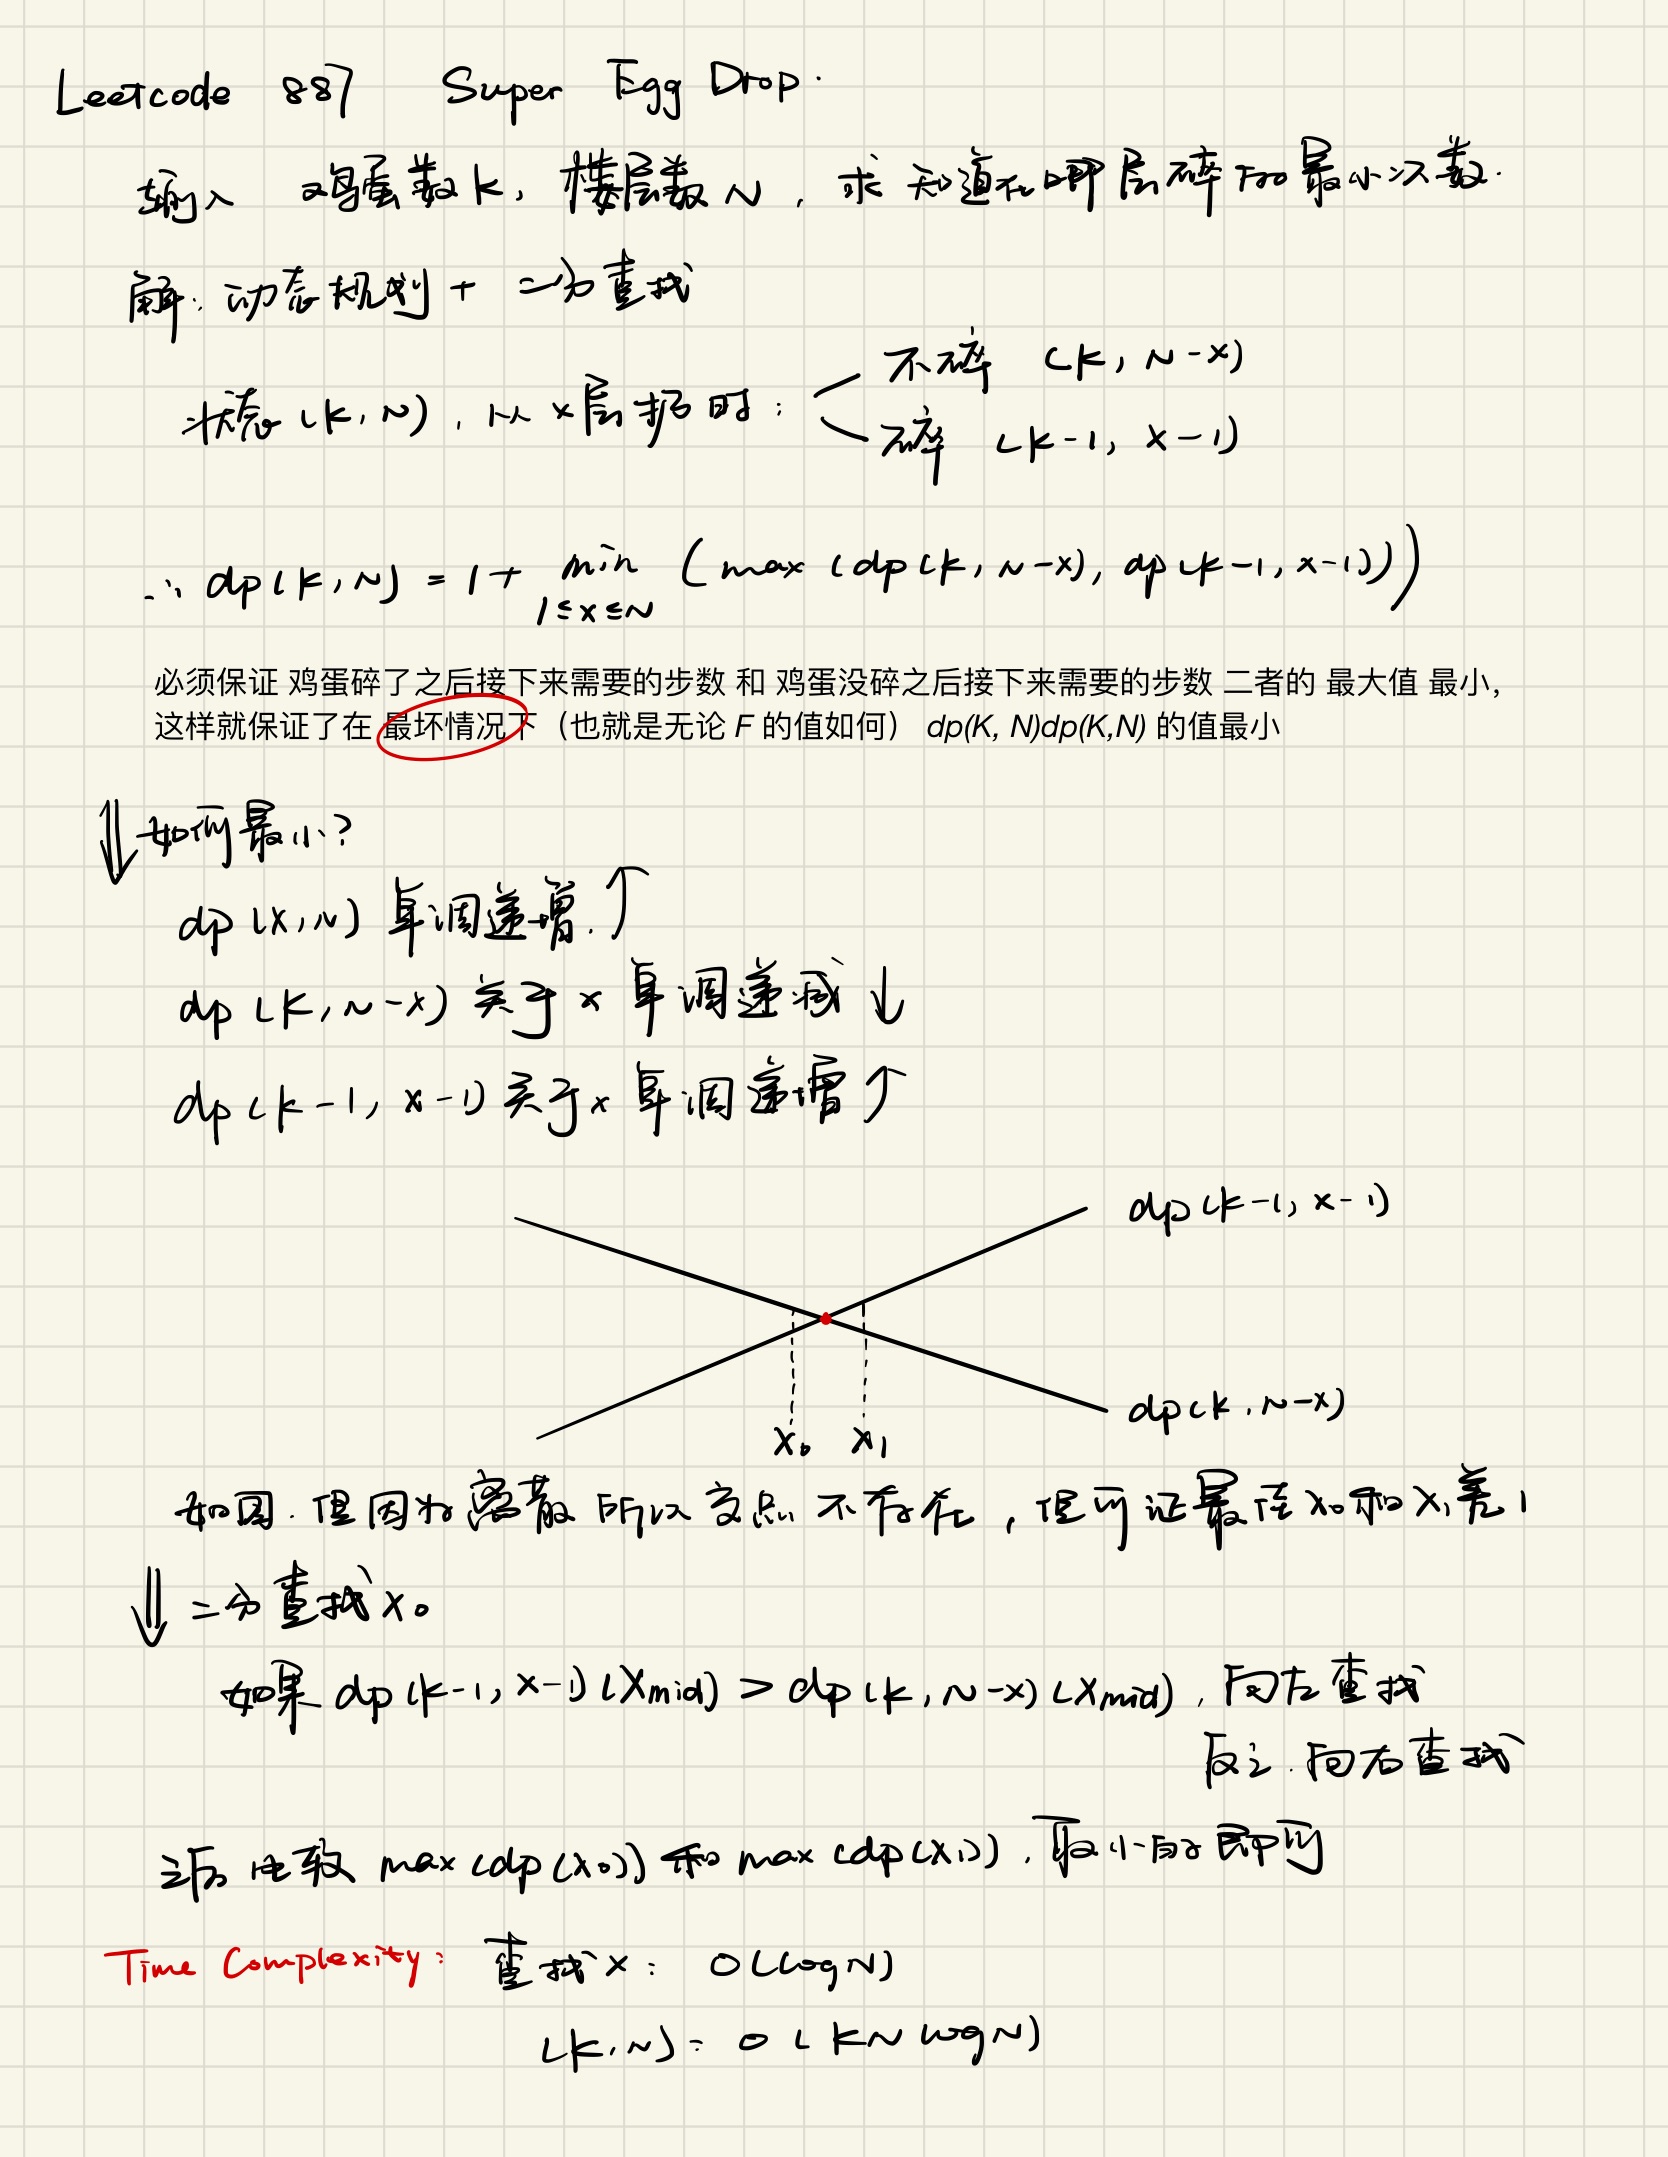 Leetcode 887 Super Egg Drop.
输入 鸡蛋数 K, 楼层数 N, 求知道在哪层碎的最小次数.
解: 动态规划 + 二分查找
状态 (K, N), 从 x 层扔时:
不碎 (K, N-x)
碎 (K-1, x-1)
∴ dp(K, N) = 1 + min (max (dp(K, N-x), dp(K-1, x-1)))
1≤x≤N
必须保证 鸡蛋碎了之后接下来需要的步数 和 鸡蛋没碎之后接下来需要的步数 二者的 最大值 最小,
这样就保证了在 最坏情况下（也就是无论 F 的值如何） dp(K, N)dp(K,N) 的值最小
⇓ 如何最小?
dp(x, N) 单调递增. ↑
dp(K, N-x) 关于 x 单调递减 ↓
dp(K-1, x-1) 关于 x 单调递增 ↑
dp(K-1, x-1)
dp(K, N-x)
x₀ x₁
如图. 但因为离散 所以交点不存在, 但可证最佳 x₀ 和 x₁ 差 1
⇓ 二分查找 x₀
如果 dp(K-1, x-1)(Xmid) > dp(K, N-x)(Xmid), 向左查找
反之. 向右查找
之后比较 max(dp(x₀)) 和 max(dp(x₁)), 取小的即可
Time Complexity: 查找 x: O(logN)
(K, N): O(KN logN)